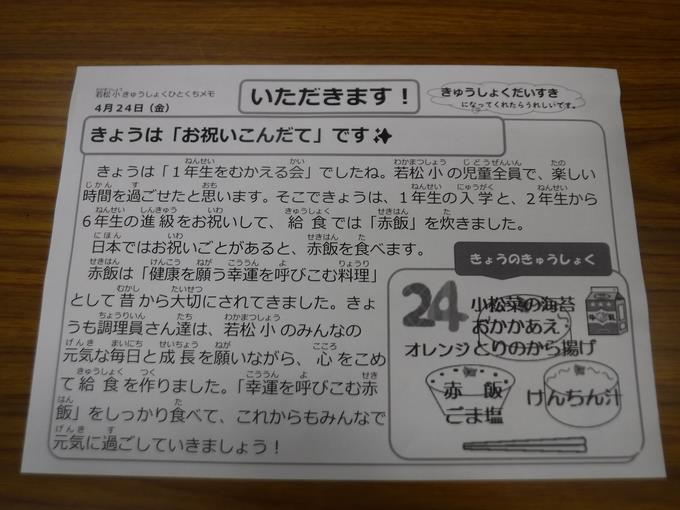 若松小きゅうしょくひとくちメモ
4月24日（金）
いただきます！
きゅうしょくだいすき
になってくれたらうれしいです。
きょうは「お祝いこんだて」です✨
きょうは「１年生をむかえる会」でしたね。若松小の児童全員で、楽しい
時間を過ごせたと思います。そこできょうは、１年生の入学と、２年生から
６年生の進級をお祝いして、給食では「赤飯」を炊きました。
日本ではお祝いごとがあると、赤飯を食べます。
赤飯は「健康を願う幸運を呼びこむ料理」
として昔から大切にされてきました。きょ
うも調理員さん達は、若松小のみんなの
元気な毎日と成長を願いながら、心をこめ
て給食を作りました。「幸運を呼びこむ赤
飯」をしっかり食べて、これからもみんなで
元気に過ごしていきましょう！
きょうのきゅうしょく
24
小松菜の海苔
おかかあえ
オレンジ とりのから揚げ
赤飯
ごま塩
けんちん汁